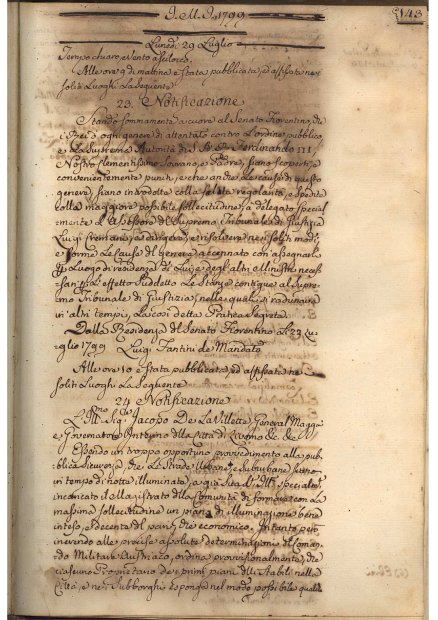 I. M. I. 1799
143
Lunedì 29 Luglio
Tempo chiaro, e vento a scilocco.
Alle ore 9 di mattina è stata pubblicata, ed affissata nei
soliti Luoghi la seguente
23. Notificazione
Stando sommamente a cuore al Senato Fiorentino, che
i Rei d'ogni genere di attentato contro l'ordine pubblico
e la Suprema Autorità di S. A. R. Ferdinando III
Nostro clementissimo Sovrano, e Padre, siano scoperti, e
convenientemente puniti, e che anche le cause di questo
genere, siano introdotte colla solita regolarità, e spedite
colla maggiore possibile sollecitudine, à delegato special-
mente l'Assessore del Supremo Tribunale di Giustizia
Luigi Cremani, a dirigere, e risolvere nei soliti modi,
e forme le cause del genere accennato con assegnare
p. Luogo di residenza di Lui, e degli altri Ministri neces-
sari all'effetto suddetto le Stanze contigue al Supre-
mo Tribunale di Giustizia, nelle quali si radunava
in altri tempi, la così detta Pratica Segreta
Dalla Residenza del Senato Fiorentino Li 23 Lu-
glio 1799 Luigi Fantini de Mandato
Alle ore 10 è stata pubblicata, ed affissata nei
soliti Luoghi la seguente
24 Notificazione
L'Ill.mo Sig. Jacopo De LaVillette General Magg.e
e Governatore Interino della Città di Livorno &c. &c.
Essendo un troppo opportuno provvedimento alla pub-
blica sicurezza, che le Strade Urbane, e Suburbane siano
in tempo di notte illuminate, à già S. Sig. Ill.ma special.te
incaricato il Magistrato della Comunità di formare con la
massima sollecitudine un piano di illuminazione bene
inteso, e decente del pari, che economico. Intanto però
inerendo alle precise assolute determinazioni del Coman-
do Militare Austriaco, ordina provvisionalmente, che
ciascun Proprietario dei primi piani delli Stabili nella
Città, e nei Subborghi esponga nel modo possibile quelli